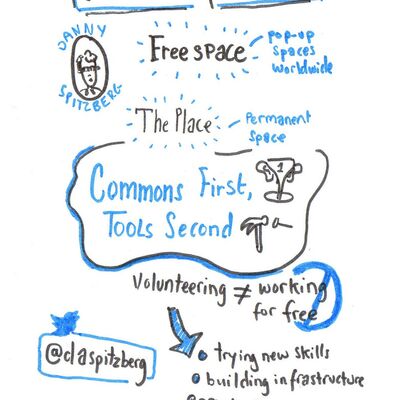 DANNY
SPITZBERG
Free space
pop-up
spaces
worldwide
The Place
Permanent
Space
Commons First,
1
Tools Second
Volunteering ≠ working
for free
@daspitzberg
trying new skills
building infrastructure